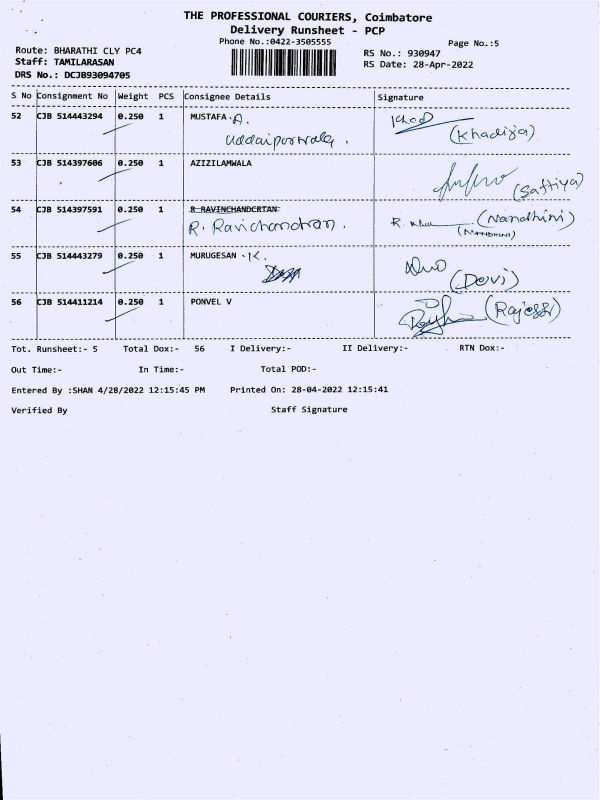 THE PROFESSIONAL COURIERS, Coimbatore
Delivery Runsheet - PCP
Phone No.:0422-3505555
Page No.:5
Route: BHARATHI CLY PC4
RS No.: 930947
Staff: TAMILARASAN
RS Date: 28-Apr-2022
DRS No.: DCJB93094705
S No Consignment No Weight PCS Consignee Details Signature
52 CJB 514443294 0.250 1 MUSTAFA .A.
Uddaiporwala . (Khadija)
53 CJB 514397606 0.250 1 AZIZILAMWALA
(Saffiya)
54 CJB 514397591 0.250 1 R RAVINCHANDCRTAN
R. Ravichandran . R. (Nandhini)
(NANDHINI)
55 CJB 514443279 0.250 1 MURUGESAN .K.
(Devi)
56 CJB 514411214 0.250 1 PONVEL V
Tot. Runsheet:- 5 Total Dox:- 56 I Delivery:- II Delivery:- RTN Dox:-
Out Time:- In Time:- Total POD:-
Entered By :SHAN 4/28/2022 12:15:45 PM Printed On: 28-04-2022 12:15:41
Verified By Staff Signature